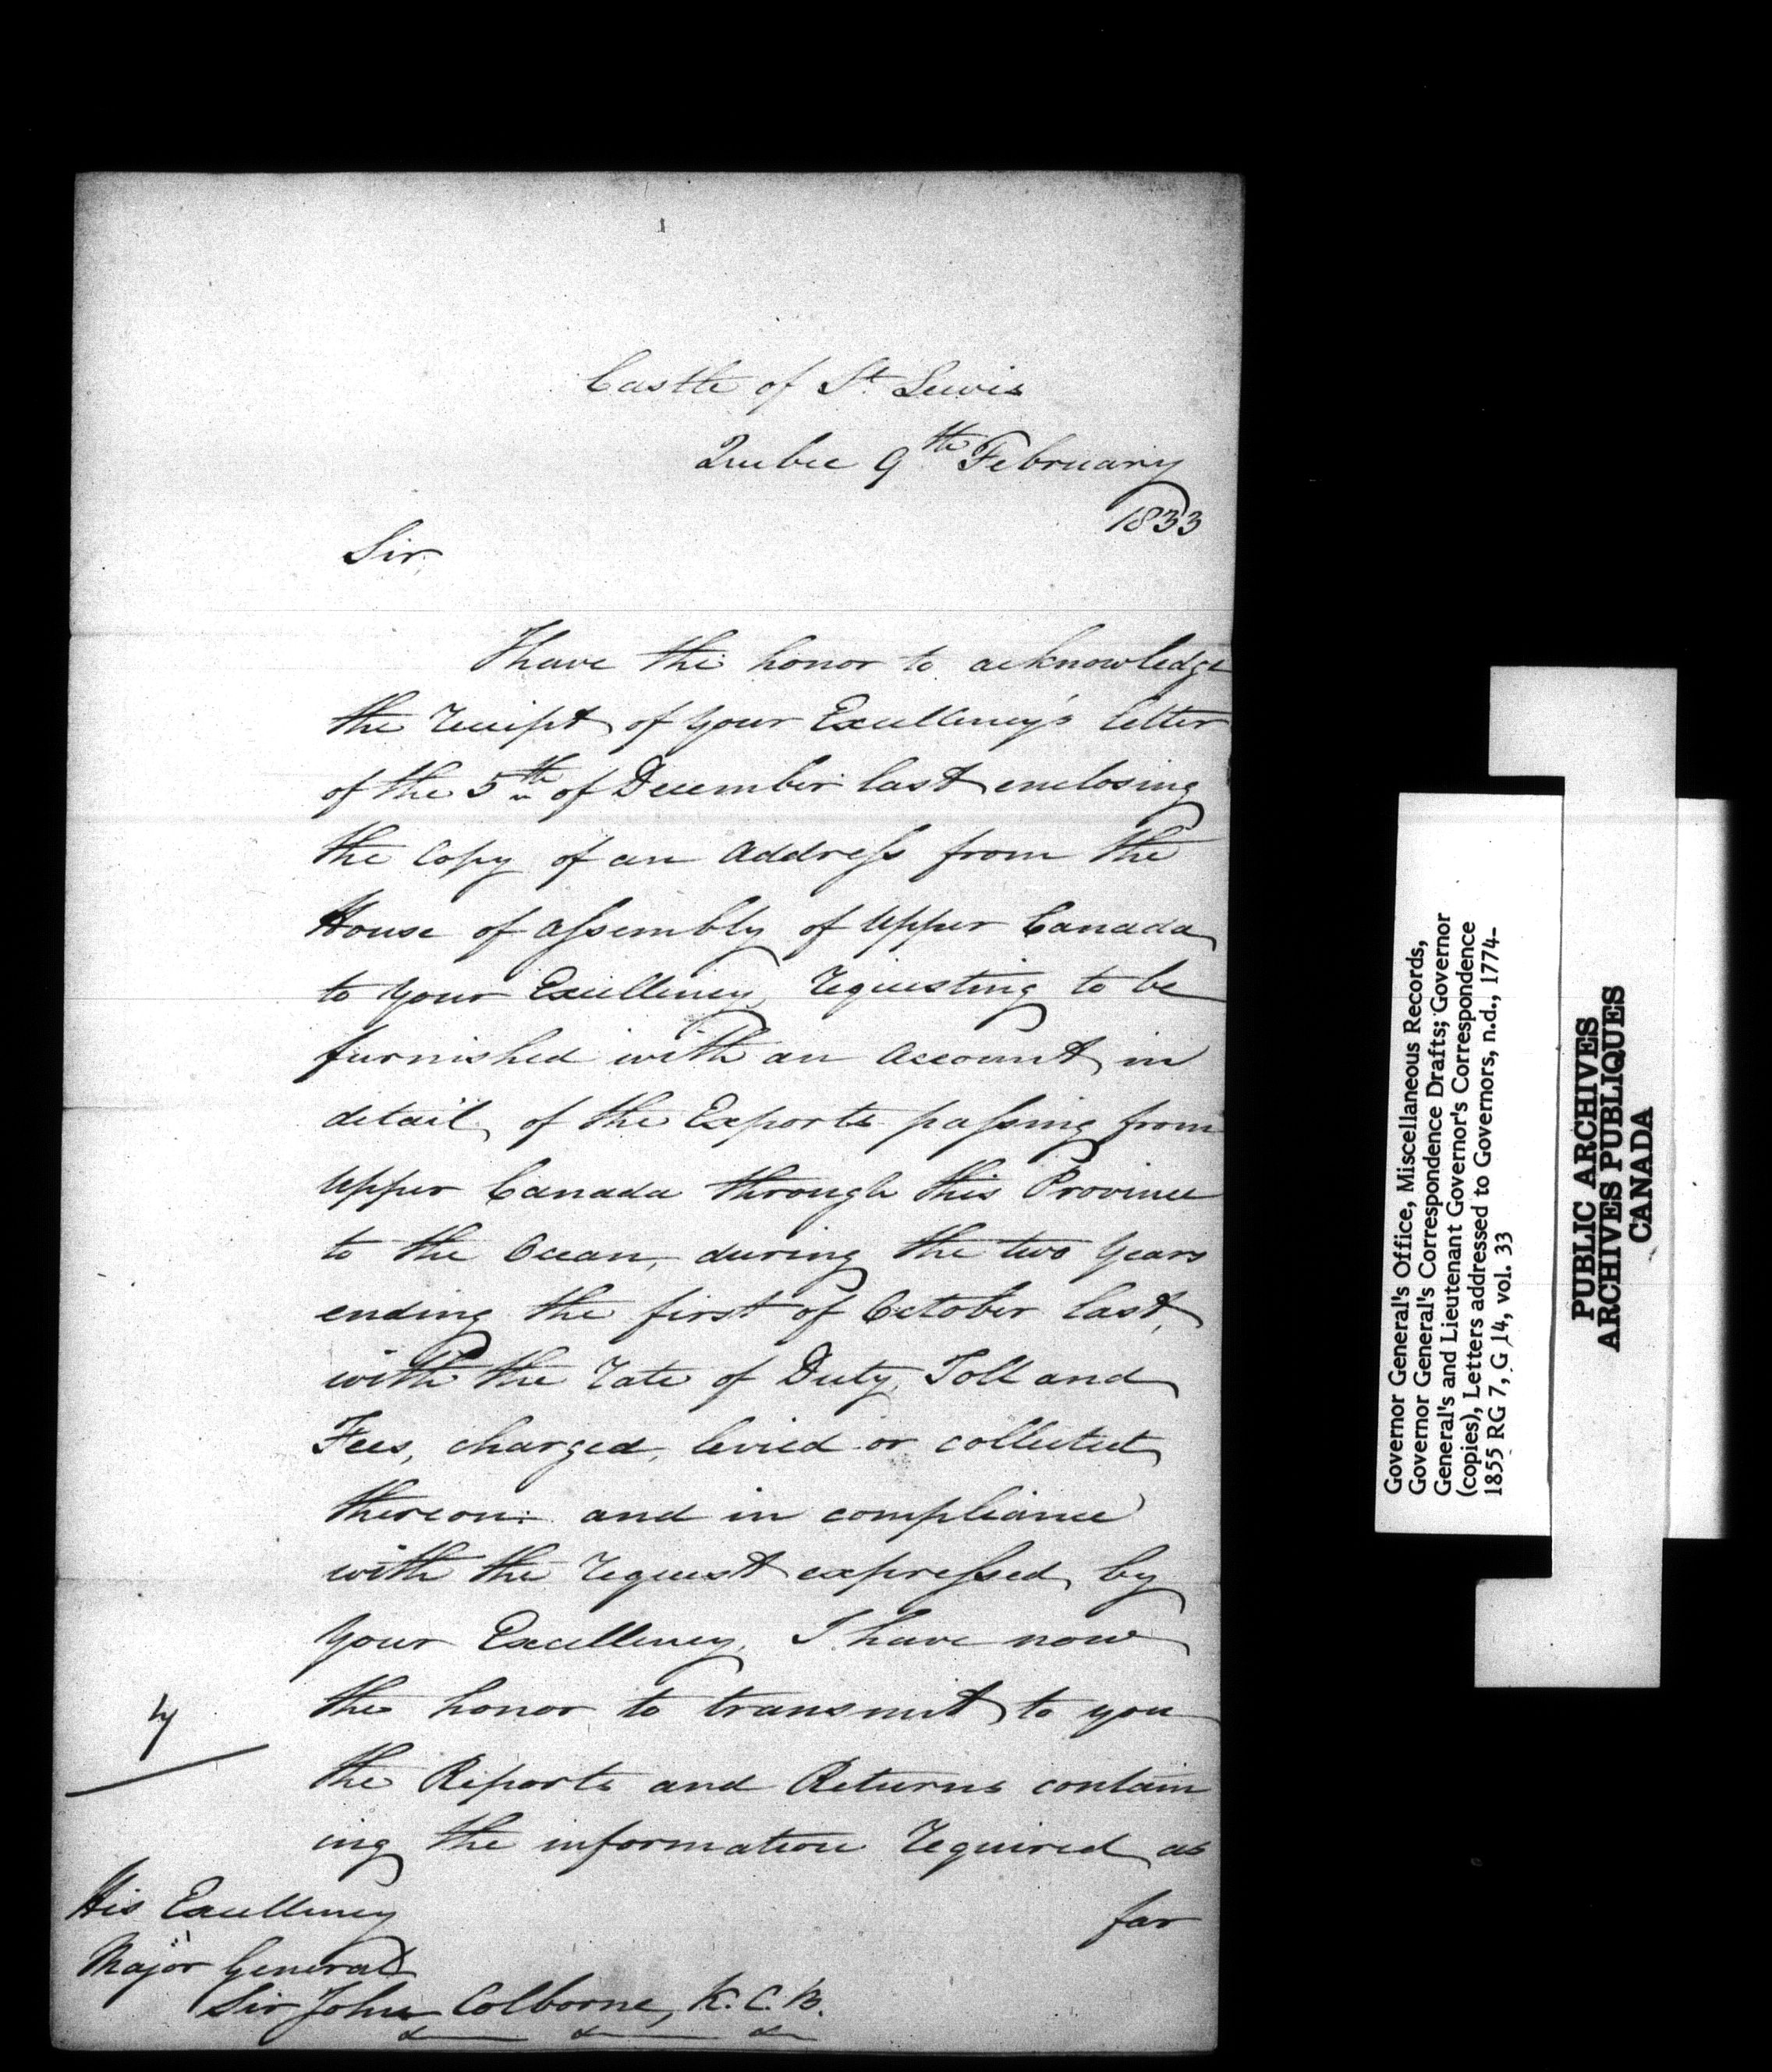 Castle of St. Lewis
Quebec 9th February
1833
Sir,
I have the honor to acknowledge
the receipt of Your Excellency's letter
of the 5th of December last enclosing
the Copy of an Address from the
House of Assembly of Upper Canada
to Your Excellency, requesting to be
furnished with an Account in
detail, of the Exports passing from
Upper Canada through this Province
to the Ocean, during the two Years
ending the first of October last,
with the rate of Duty, Toll and
Fees, charged, levied or collected
thereon: and in compliance
with the request expressed by
Your Excellency, I have now
the honor to transmit to you
the Reports and Returns contain
ing the information required as
far
4
His Excellency
Major General
Sir John Colborne, K.C.B.
&c &c &c
Governor General's Office, Miscellaneous Records,
Governor General's Correspondence Drafts; Governor
General's and Lieutenant Governor's Correspondence
(copies), Letters addressed to Governors, n.d., 1774-
1855 RG 7, G 14, vol. 33
PUBLIC ARCHIVES
ARCHIVES PUBLIQUES
CANADA